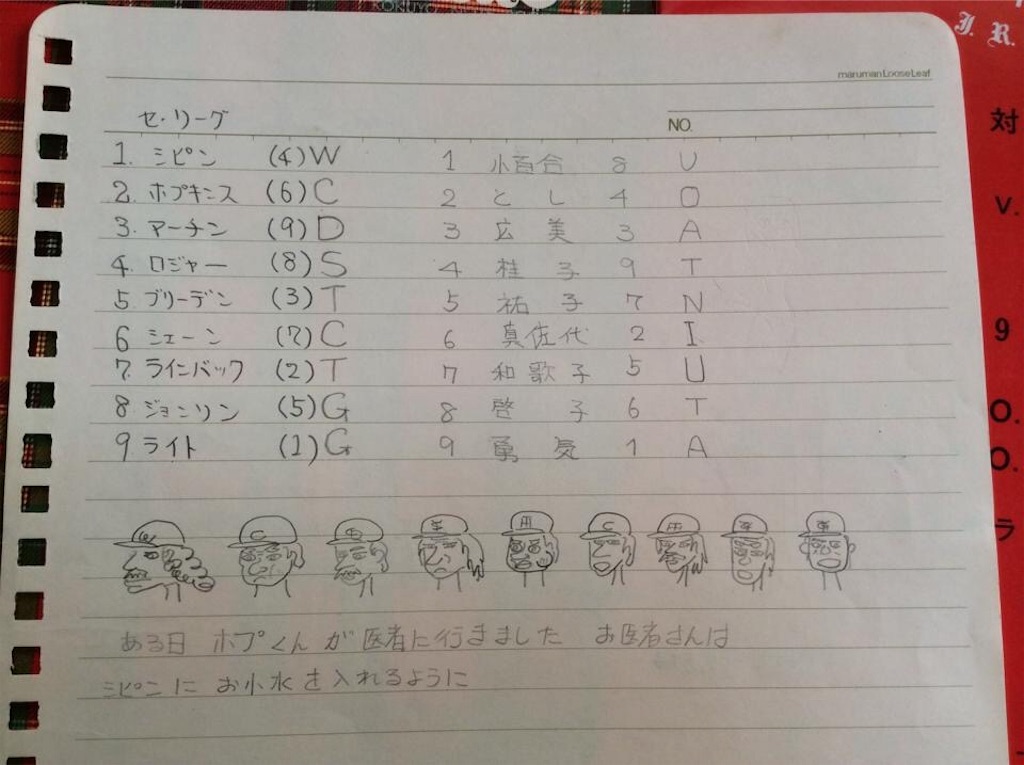 KOKUYO
J. R.
maruman LooseLeaf
セ・リーグ
NO.
対
1. シピン (4) W 1 小百合 8 U
2. ホプキンス (6) C 2 とし 4 O
V.
3. マーチン (9) D 3 広美 3 A
4. ロジャー (8) S 4 桂子 9 T
5 ブリーデン (3) T 5 祐子 7 N
6 シェーン (7) C 6 真佐代 2 I
9
7. ラインバック (2) T 7 和歌子 5 U
8 ジョンソン (5) G 8 啓子 6 T
O.
9 ライト (1) G 9 勇気 1 A
O.
ラ
W C C
ある日 ホプくんが医者に行きました お医者さんは
シピンに お小水を入れるように